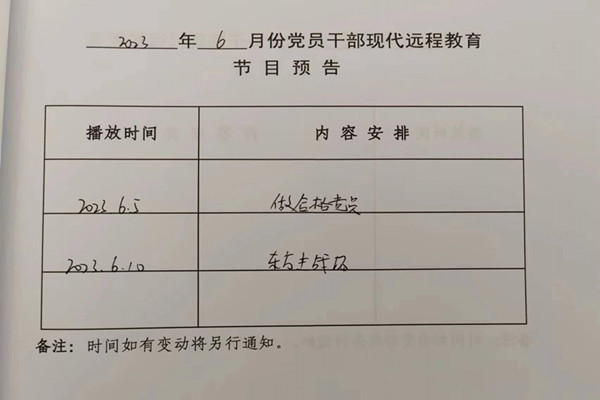 2023 年 6 月份党员干部现代远程教育
节目预告
播放时间 内容安排
2023 6.5 做合格党员
2023.6.10 东方主战场
备注：时间如有变动将另行通知。